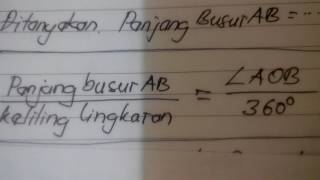 Ditanyakan. Panjang Busur AB = ...
Panjang busur AB / keliling lingkaran = ∠AOB / 360°